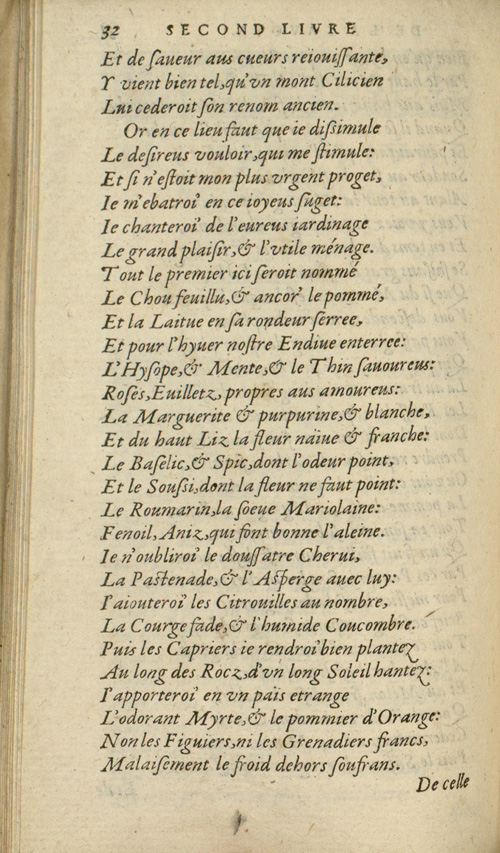 32 SECOND LIVRE
Et de ſaueur aus cueurs reiouiſſante,
Y vient bien tel, qu'vn mont Cilicien
Lui cederoit ſon renom ancien.
Or en ce lieu faut que ie diſsimule
Le deſireus vouloir, qui me ſtimule:
Et ſi n'eſtoit mon plus vrgent proget,
Ie m'ebatroi' en ce ioyeus ſuget:
Ie chanteroi' de l'eureus iardinage
Le grand plaiſir, & l'vtile ménage.
Tout le premier ici ſeroit nommé
Le Chou feuillu, & ancor' le pommé,
Et la Laitue en ſa rondeur ſerree,
Et pour l'hyuer noſtre Endiue enterree:
L'Hyſope, & Mente, & le Thin ſauoureus:
Roſes, Euilletz, propres aus amoureus:
La Marguerite & purpurine, & blanche,
Et du haut Liz la fleur naïue & franche:
Le Baſelic, & Spic, dont l'odeur point,
Et le Souſsi, dont la fleur ne faut point:
Le Roumarin, la ſoeue Mariolaine:
Fenoil, Aniz, qui font bonne l'aleine.
Ie n'oubliroi' le douſſatre Cherui,
La Paſtenade, & l'Aſperge auec luy:
I'aiouteroi' les Citrouilles au nombre,
La Courge fade, & l'humide Coucombre.
Puis les Capriers ie rendroi' bien plantez
Au long des Rocz, d'vn long Soleil hantez:
I'apporteroi' en vn païs etrange
L'odorant Myrte, & le pommier d'Orange:
Non les Figuiers, ni les Grenadiers francs,
Malaiſement le froid dehors ſoufrans.
De celle